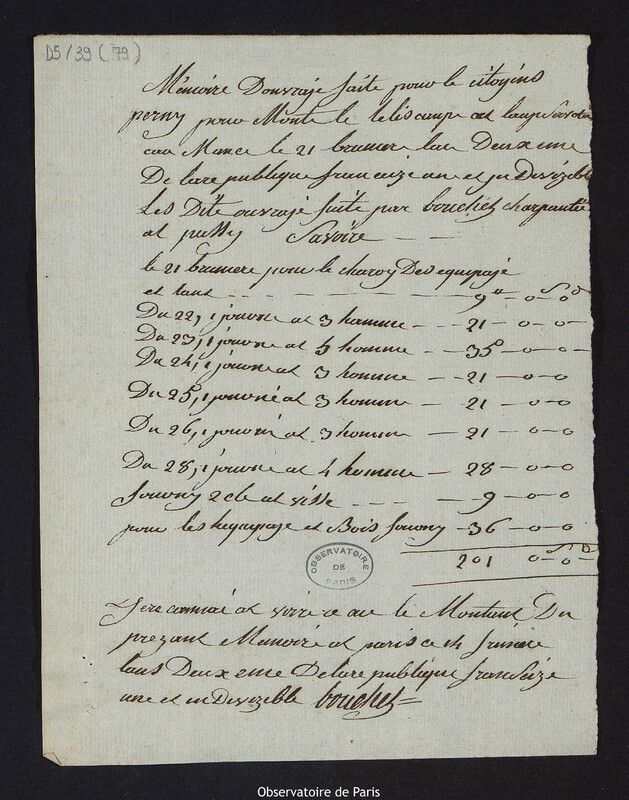 D5/39 (79)
Mémoire Douvraje faite pour le citoyens
perny pour Monte le teliscaupe at
au Mance le 21 brumere lan Deux eme
De lare publique francaize une et in Divizible
Les Dite ouvraje faite par bouchet charpantie
at passy Savoire
le 21 brumere pour le charoy Des equipaje
et tans 9# o o
Du 22, 1 journe at 3 homme 21 o o
Du 23, 1 journe at 5 homme 35 o o
Du 24, 1 journe at 3 homme 21 o o
Du 25, 1 journé at 3 homme 21 o o
Du 26, 1 journé at 3 homme 21 o o
Du 28, 1 journe at 4 homme 28 o o
fourny 2 cle at visse 9 o o
pour les hequipaje et Bois fourny 36 o o
201 o o
OBSERVATOIRE DE PARIS
le Montant Du
prezant Memoire at paris ce 14 frimere
lans Deux eme De lare publique francaize
une et in Divizible bouchet
Observatoire de Paris